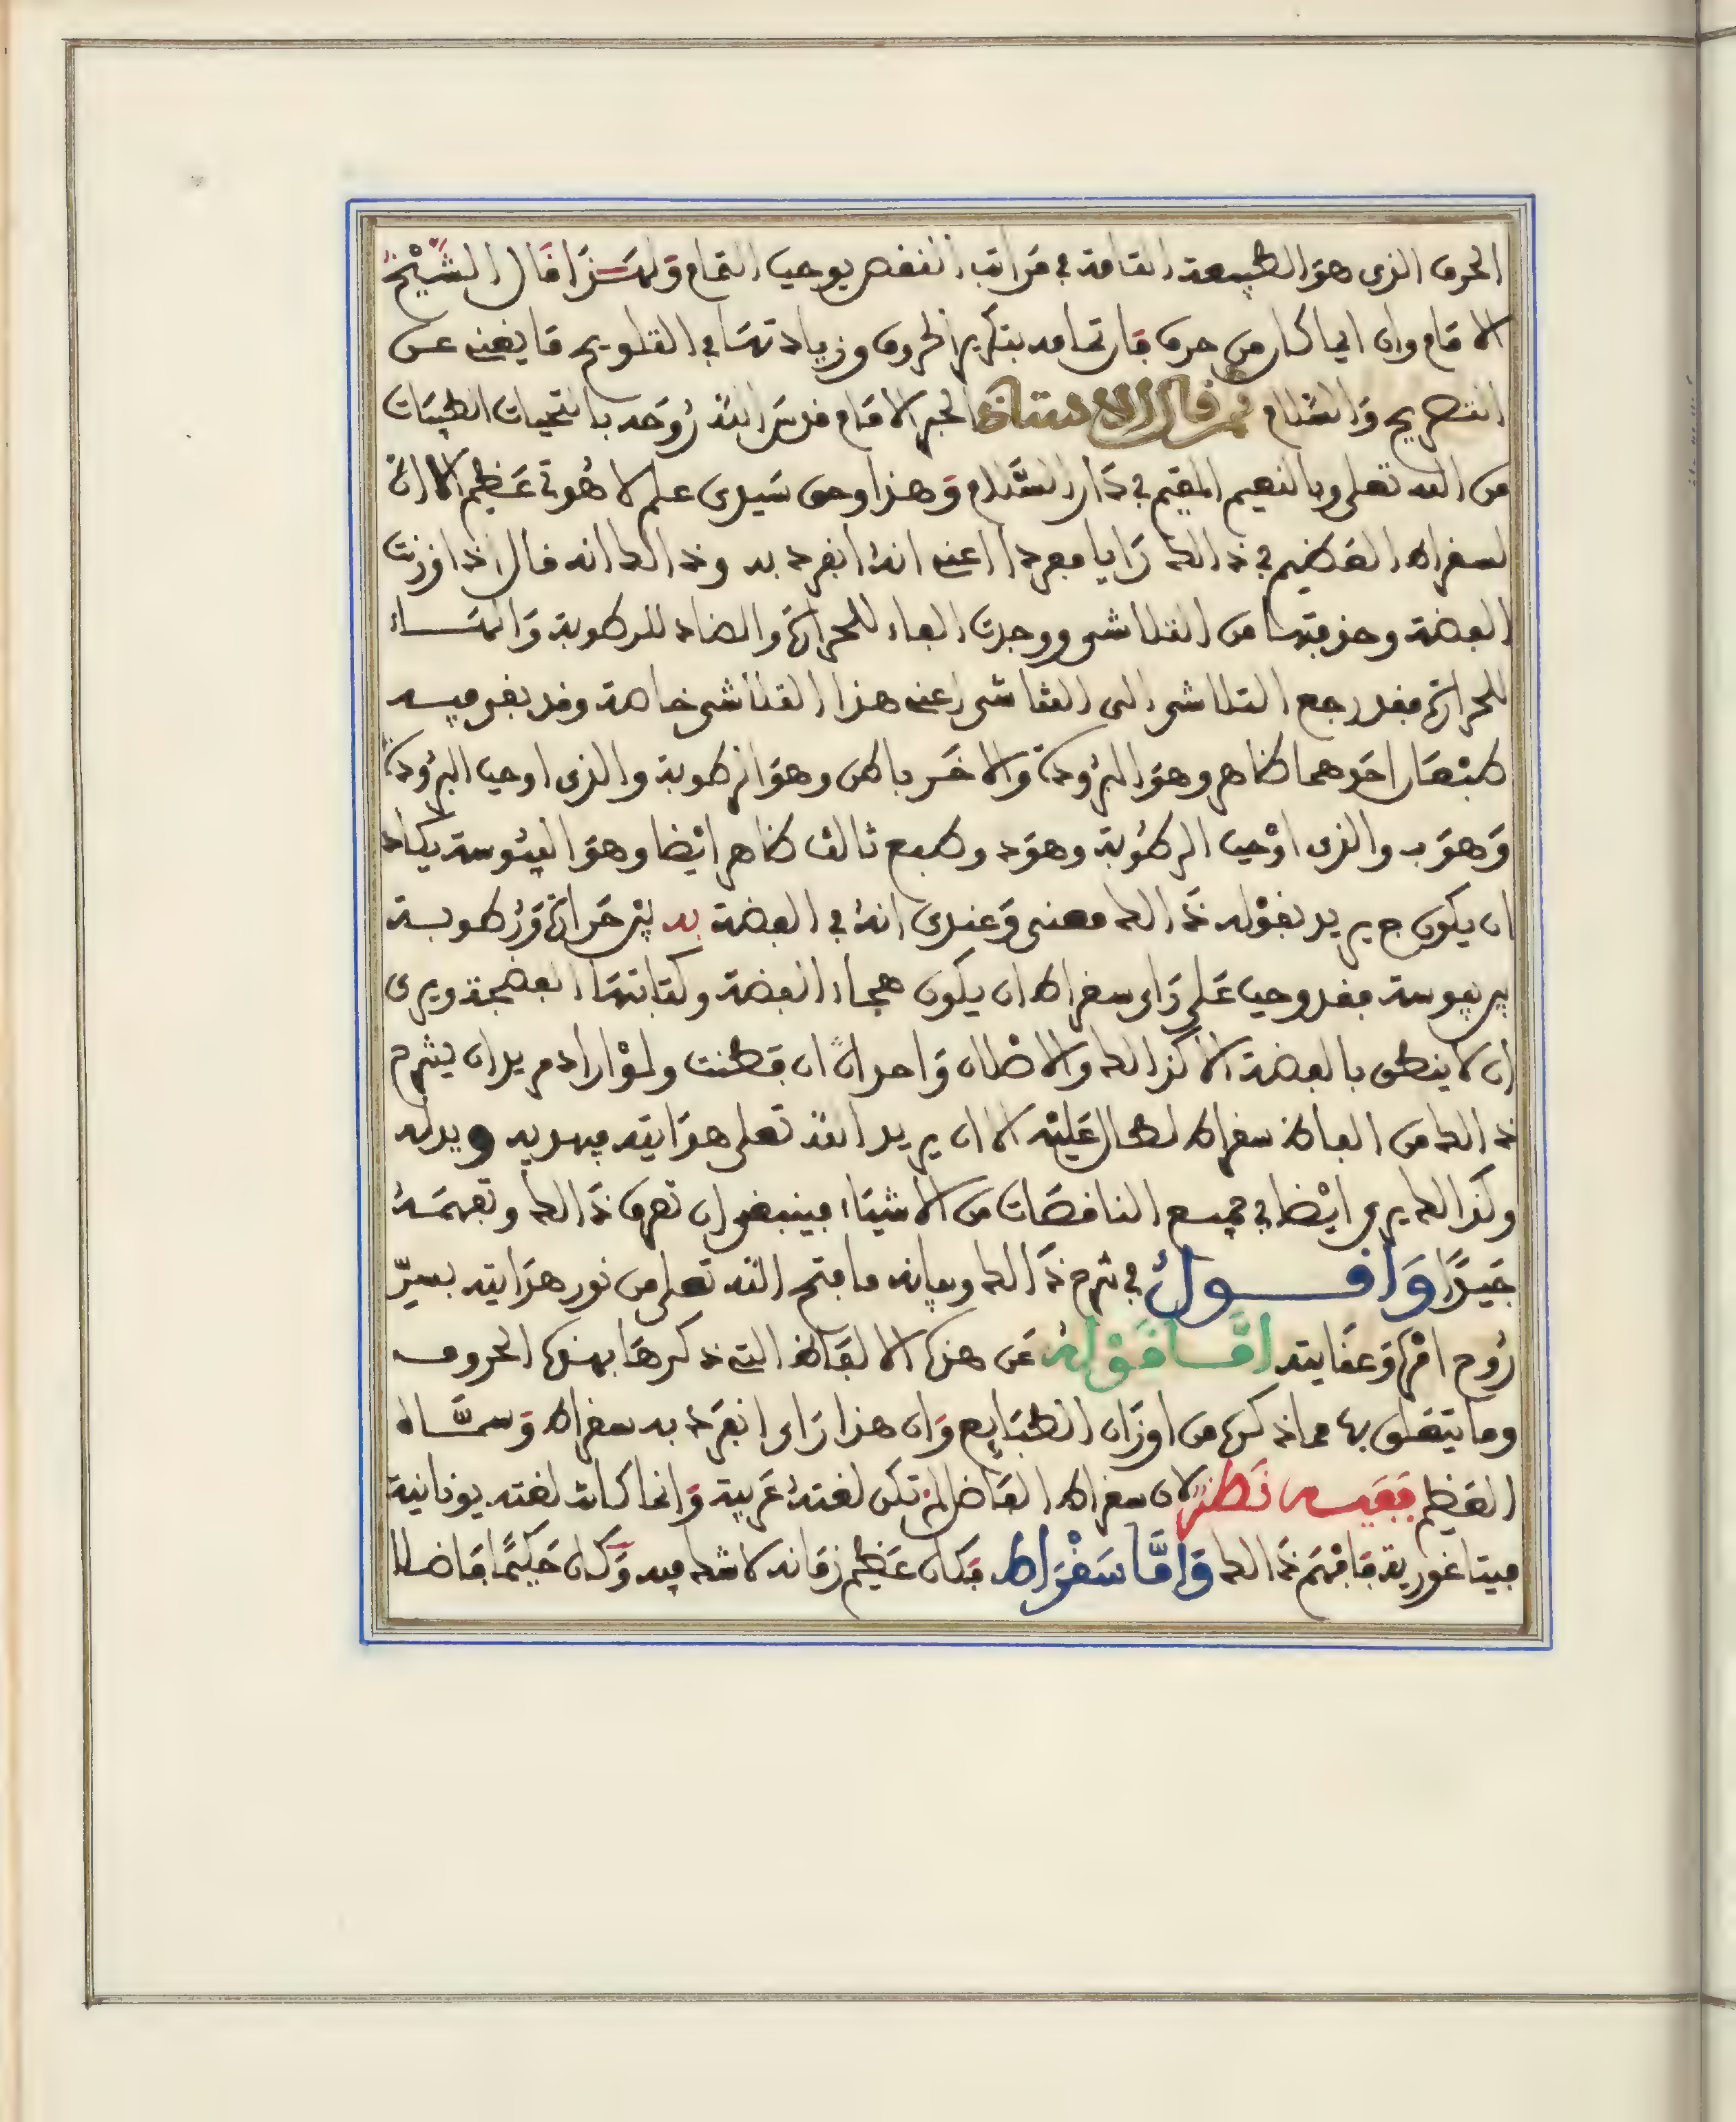 الحرف الذى هو الطبيعة القامة في مراتب النقص يوجب التمام ولهذا قال الشيخ
الامام وان اي كان من حرف فان تمامه بتكرير الحروف وزيادتها في التلويح ما يغنى عن
التصريح والسلام ثم قال الاستاذ الحبر الامام قدس الله روحه بالتحيات الطيبات
من الله تعلى وبالنعيم المقيم في دار السلام وهذا وحق سيدى علم لاهوتي عظيم الا ان
لسقراط العظيم في ذالك رايا مفردا اعنى انه انفرد به وذالك انه قال اذا وزنت
الفضة وحذفتها من التلاشى ووجدت الفاء للحرارة والضاد للرطوبة والهاء
للحرارة فقد رجع التلاشى الى التلاشى اعنى هذا التلاشى خاصة وقد بقى فيه
طبعان احدهما ظاهر وهو البرودة والاخر باطن وهو الرطوبة والذى اوجب البرودة
وهو ب والذى اوجب الرطوبة وهو د وطبع ثالث ظاهر ايضا وهو اليبوسة يكاد
ان يكون ج يريد بقوله ذالك معنى وعندى انه في الفضة بد بين حرارة ورطوبة
بين يبوسة فقد وجب على راى سقراط ان يكون هجاء الفضة وكتابتها الفضجة ويرى
ان لا ينطق بالفضة الا كذالك والاظلان واحدا ان فطنت ولو اراد مريد ان يشرح
ذالك من الفاظ سقراط لطال عليه الا ان يريد الله تعلى هدايته فيهديه ويدله
وكذالك يرى ايضا في جميع الناقصات من الاشياء فينبغى ان تعرف ذالك وتفهمه
جيدا واقول في شرح ذالك وبيانه ما فتح الله تعلى من نور هدايته بسر
روح امره وعنايته اما قوله عن هذه الالفاظ التى ذكرها بهذه الحروف
وما يتعلق بها مما ذكره من اوزان الطبايع وان هذا راى انفرد به سقراط وسماه
العظيم ففيه نظر لان سقراط الفاضل لم تكن لغته عربية وانما كانت لغته يونانية
فيتاغورية فافهم ذالك واما سقراط فكان عظيم زمانه لا شك فيه وكان حكيما فاضلا